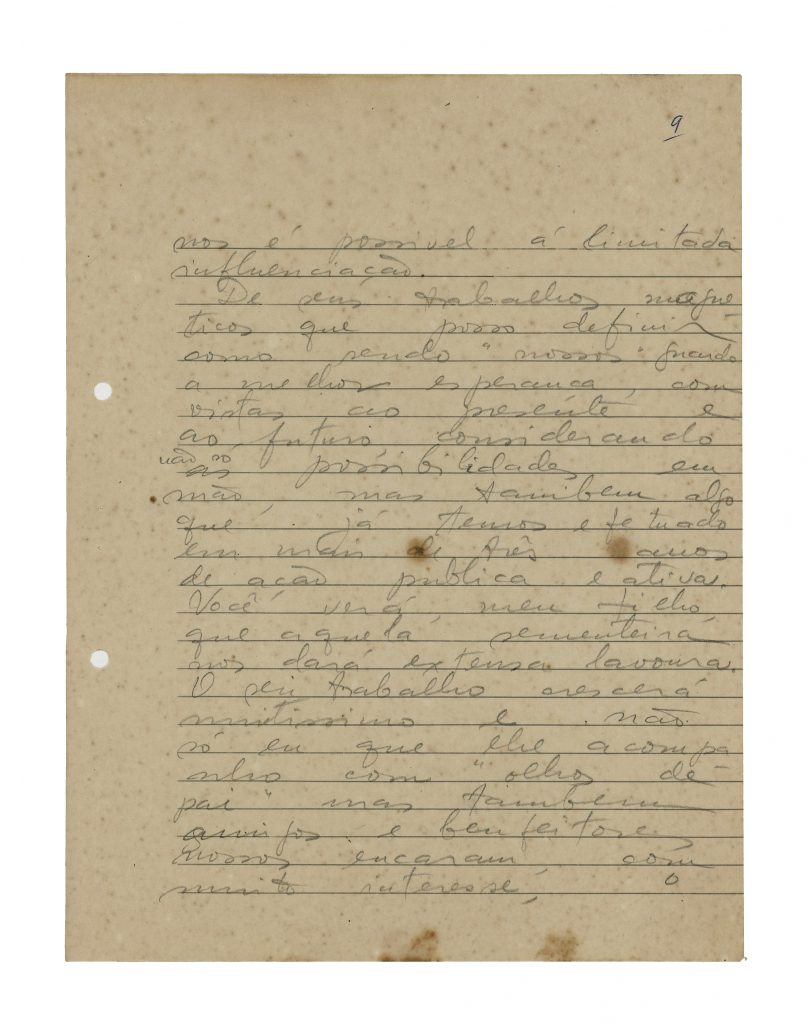 9
nos é possivel á limitada
influenciação.
De seus trabalhos magné
ticos que posso definir
como sendo "nossos" guardo
a melhor esperança, com
vistas ao presente e
ao futuro, considerando
não só
as possibilidades em
mão, mas tambem algo
que já temos efetuado
em mais de três anos
de ação publica e ativa.
Você verá, meu filho,
que aquela sementeira
nos dará extensa lavoura.
O seu trabalho crescerá
muitissimo e não
só eu que lhe acompa
nho com "olhos de
pai" mas tambem
amigos e benfeitores
nossos encaram com
muito interesse, o